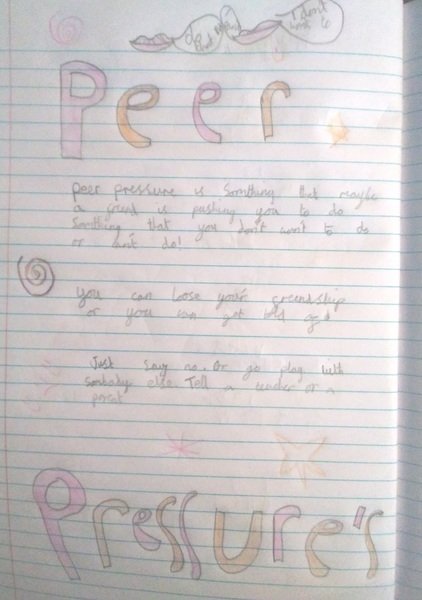 I don't
want to
Peer
peer pressure is somthing that maybe
a greend is pushing you to do
somthing that you don't want to do
or can't do!
you can loose your greendship
or you can get
Just say no. Or go play with
sombody else. Tell a teacher or a
parent
Pressure's